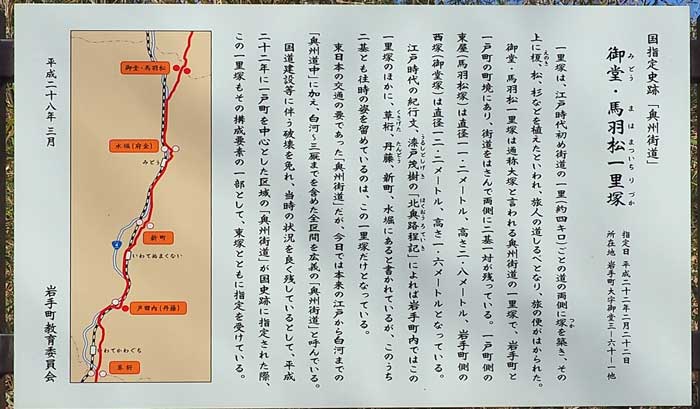 国指定史跡「奥州街道」
御堂・馬羽松一里塚
みどう まはまついちりづか
指定日 平成二十二年二月二十二日
所在地 岩手町大字御堂三ー六十ー一他
一里塚は、江戸時代初め街道の一里(約四キロ)ごとの道の両側に塚を築き、その
上に榎、松、杉などを植えたといわれ、旅人の道しるべとなり、旅の便がはかられた。
御堂・馬羽松一里塚は通称大塚と言われる奥州街道の一里塚で、岩手町と
一戸町の町境にあり、街道をはさんで両側に二基一対が残っている。一戸町側の
東塚(馬羽松塚)は直径一一・二メートル、高さ二・八メートル、岩手町側の
西塚(御堂塚)は直径一二・二メートル、高さ一・六メートルとなっている。
江戸時代の紀行文、漆戸茂樹の「北奥路程記」によれば岩手町内ではこの
一里塚のほかに、草桁、丹藤、新町、水堀にあると書かれているが、このうち
二基とも往時の姿を留めているのは、この一里塚だけとなっている。
東日本の交通の要であった「奥州街道」だが、今日では本来の江戸から白河までの
「奥州道中」に加え、白河〜三厩までを含めた全区間を広義の「奥州街道」と呼んでいる。
国道建設等に伴う破壊を免れ、当時の状況を良く残しているとして、平成
二十二年に一戸町を中心とした区域の「奥州街道」が国史跡に指定された際、
この一里塚もその構成要素の一部として、東塚とともに指定を受けている。
平成二十八年三月
岩手町教育委員会
御堂・馬羽松
水堀(府金)
みどう
新町
いわてぬまくない
4
戸田内(丹藤)
いわてかわぐち
草桁